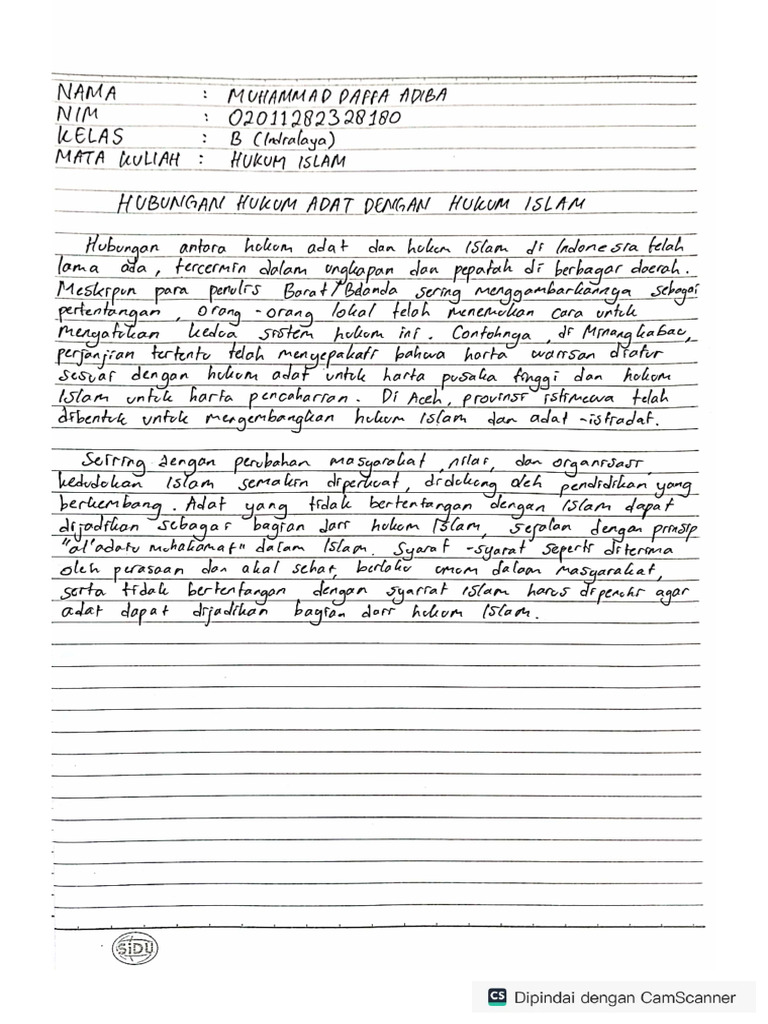 NAMA : MUHAMMAD DAFFA ADIBA
NIM : 02011282328180
KELAS : B (Indralaya)
MATA KULIAH : HUKUM ISLAM
HUBUNGAN HUKUM ADAT DENGAN HUKUM ISLAM
Hubungan antara hukum adat dan hukum Islam di Indonesia telah
lama ada, tercermin dalam ungkapan dan pepatah di berbagai daerah.
Meskipun para penulis Barat/Belanda sering menggambarkannya sebagai
pertentangan, orang-orang lokal telah menemukan cara untuk
menyatukan kedua sistem hukum ini. Contohnya, di Minangkabau,
perjanjian tertentu telah menyepakati bahwa harta warisan diatur
sesuai dengan hukum adat untuk harta pusaka tinggi dan hukum
Islam untuk harta pencaharian. Di Aceh, provinsi istimewa telah
dibentuk untuk mengembangkan hukum Islam dan adat-istiadat.
Seiring dengan perubahan masyarakat, nilai, dan organisasi,
kedudukan Islam semakin diperkuat, didukung oleh pendidikan yang
berkembang. Adat yang tidak bertentangan dengan Islam dapat
dijadikan sebagai bagian dari hukum Islam, sejalan dengan prinsip
"al'adatu muhakamat" dalam Islam. Syarat-syarat seperti diterima
oleh perasaan dan akal sehat, berlaku umum dalam masyarakat,
serta tidak bertentangan dengan syariat islam harus dipenuhi agar
adat dapat dijadikan bagian dari hukum Islam.
SiDU
CS Dipindai dengan CamScanner